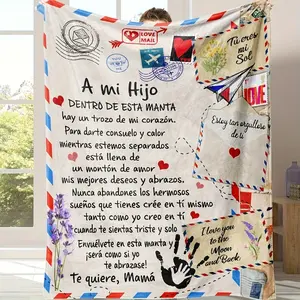 LOVE
MAIL
A mi Hijo
DENTRO DE ESTA MANTA
hay un trozo de mi corazón.
Para darte consuelo y calor
mientras estemos separados
está llena de
un montón de amor
mis mejores deseos y abrazos.
Nunca abandones los hermosos
sueños que tienes crée en ti mismo
tanto como yo creo en tí
cuando te sientas triste y solo
Envuélvete en esta manta y
¡será como si yo
te abrazase!
Te quiere, Mamá
Tú eres
mi
Sol
LOVE
Estoy tan orgullosa
de ti
I love you
to the
Moon
and Back